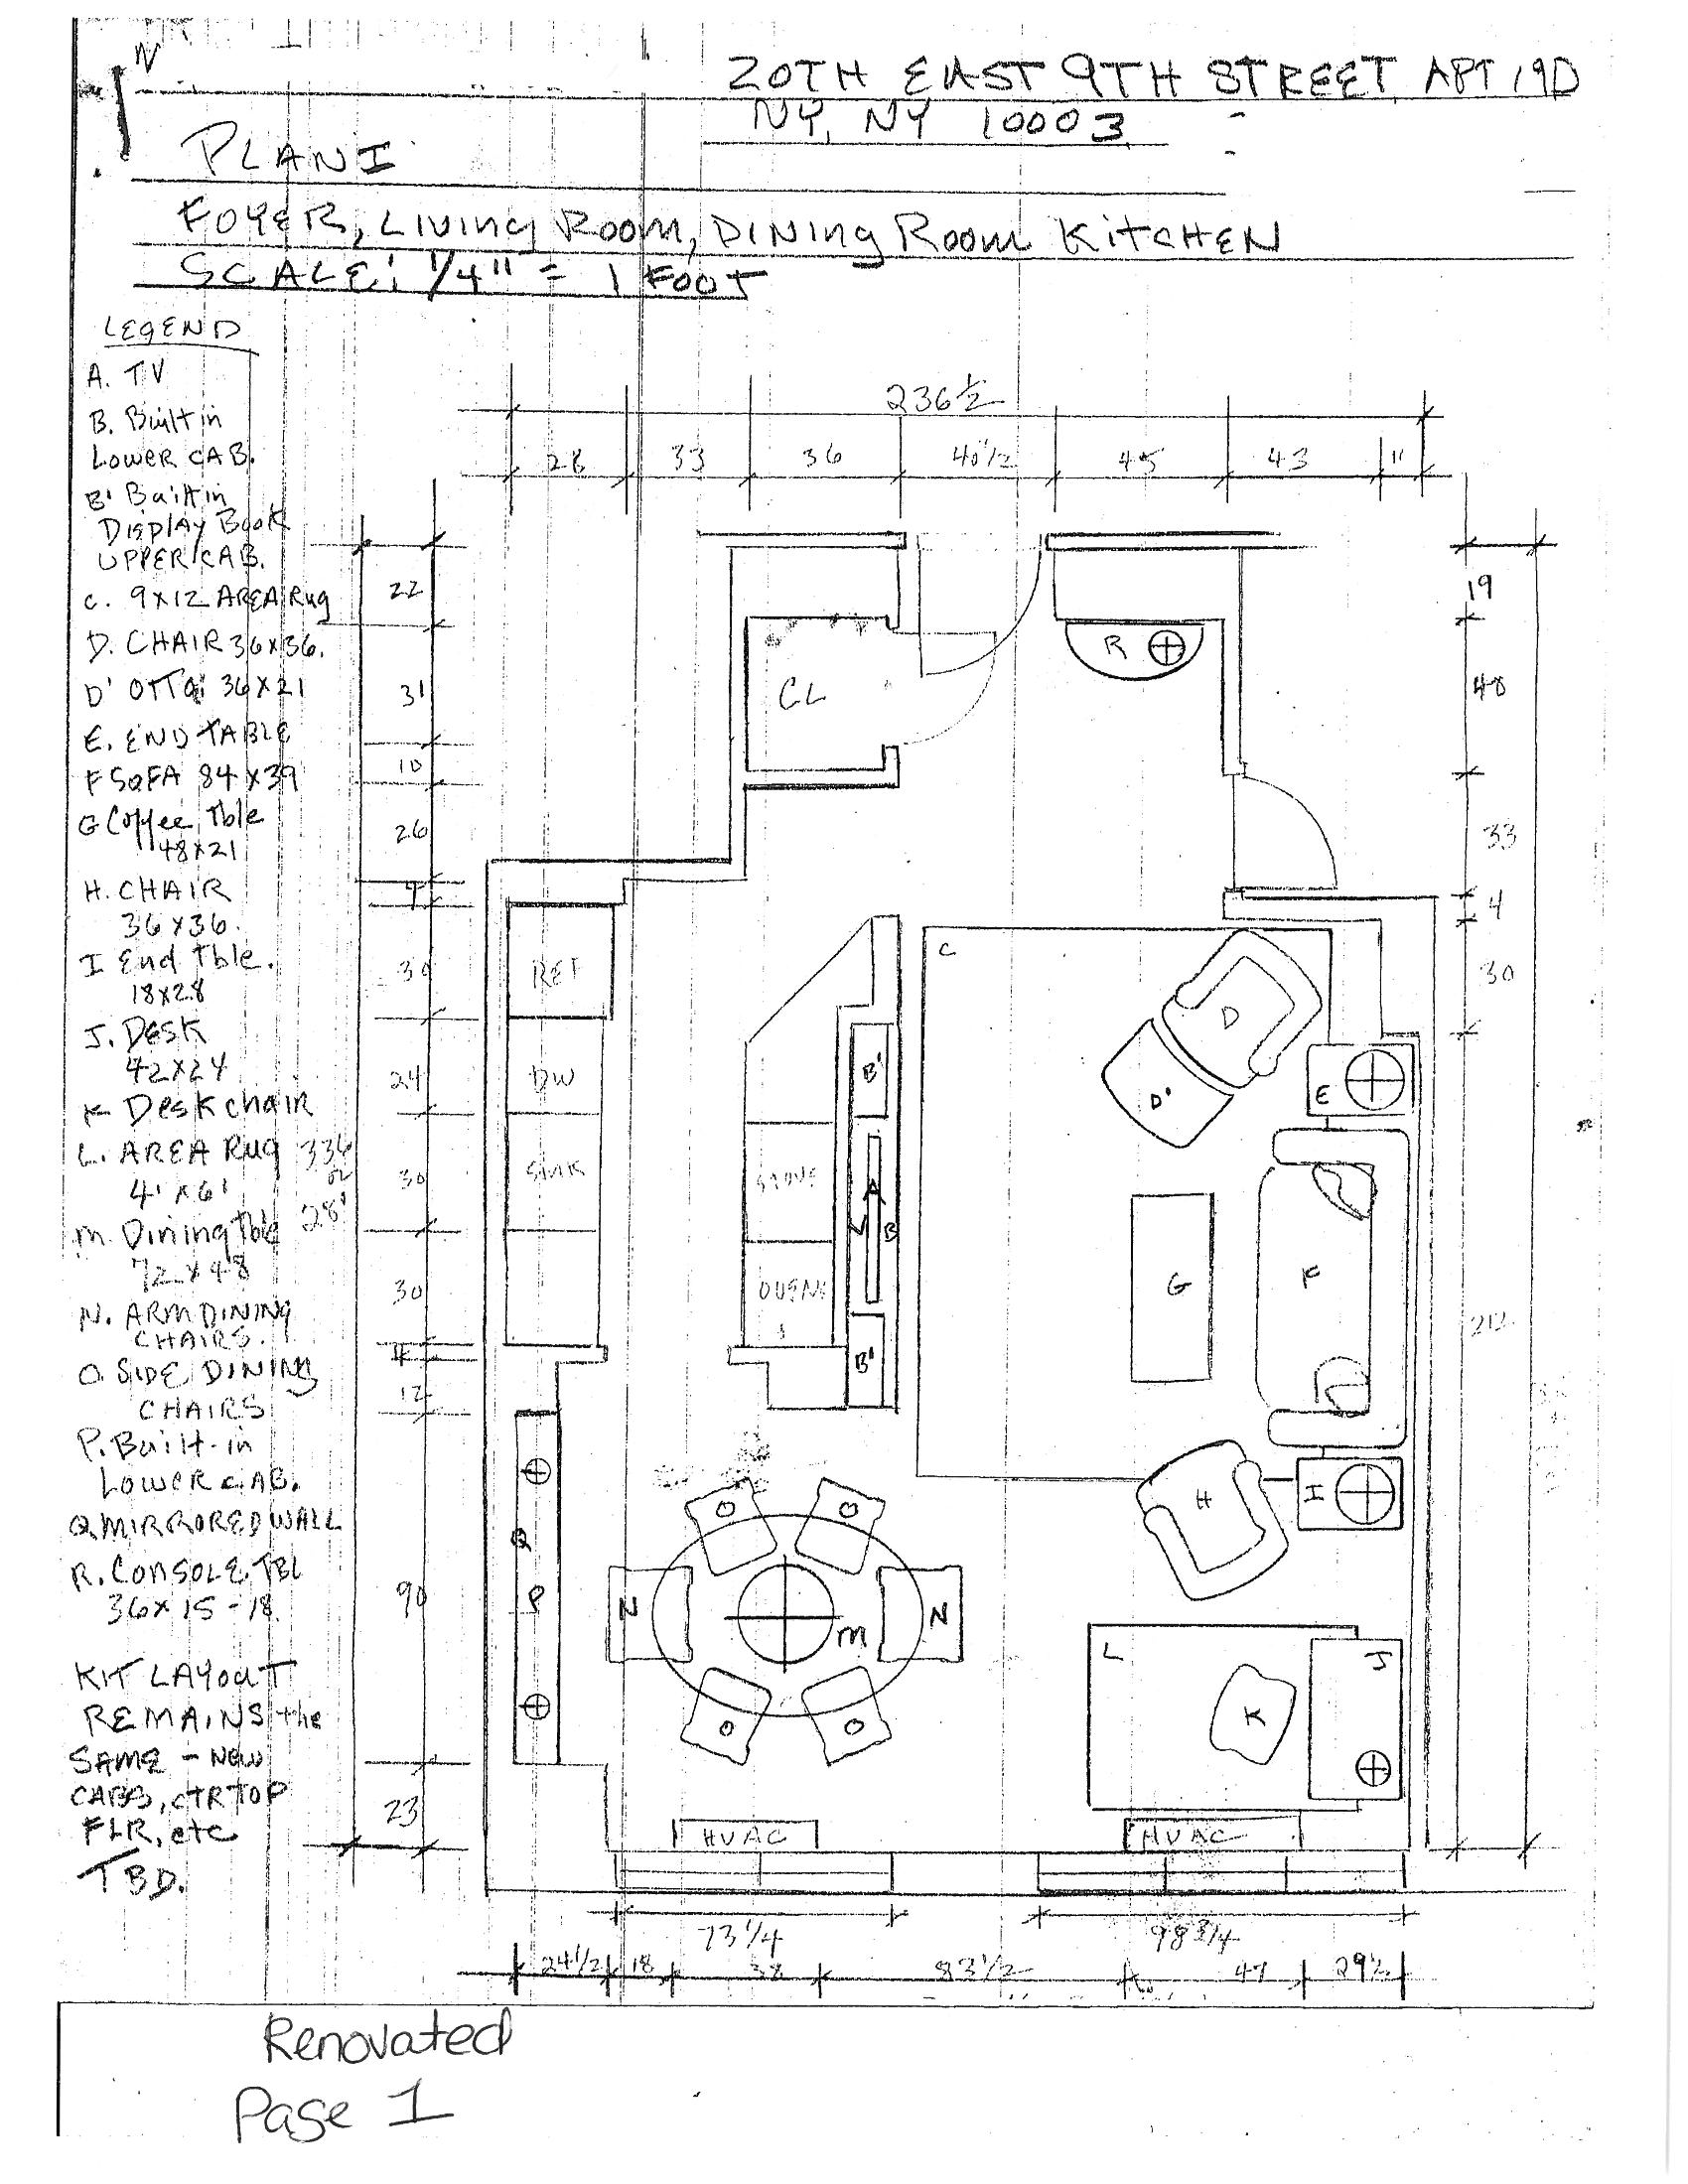 N
20TH EAST 9TH STREET, APT 19D
NY, NY 10003
PLAN I
FOYER, LIVING ROOM, DINING ROOM KITCHEN
SCALE: 1/4" = 1 FOOT
LEGEND
A. TV
B. Built in
LOWER CAB.
B' Built in
Display Book
UPPER CAB.
C. 9X12 AREA Rug
D. CHAIR 36X36.
D' OTTO: 36X21
E. END TABLE
F SOFA 84X39
G Coffee Tble
48X21
H. CHAIR
36X36.
I End Tble.
18X28
J. DESK
42X24
K Desk chair
L. AREA Rug
4'X6'
M. Dining Tble
72X48
N. ARM DINING
CHAIRS.
O. SIDE DINING
CHAIRS
P. Built-in
LOWER CAB.
Q. MIRRORED WALL
R. CONSOLE TBL
36X 15-18.
KIT LAYOUT
REMAINS the
SAME - NEW
CABS, CTRTOP
FLR, etc
TBD.
336
or
28'
236 1/2
28 33 36 40 1/2 45 43 11
22
31
10
26
7
30
24
30
30
4
12
90
23
19
48
33
4
30
212
CL
R
C
REF
DW
SINK
STOVE
OVENS
B'
A
B
B'
D
D'
E
F
G
H
I
J
K
L
M
N
N
O
O
O
O
P
Q
HVAC
HVAC
73 1/4
98 3/4
24 1/2 18 38 83 1/2 47 29 1/2
Renovated
Page 1